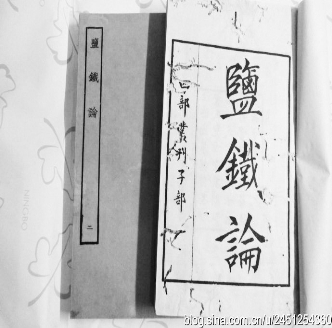 鹽鐵論
四部叢刊子部
鹽鐵論
二
blog.sina.com.cn/u/2451254360